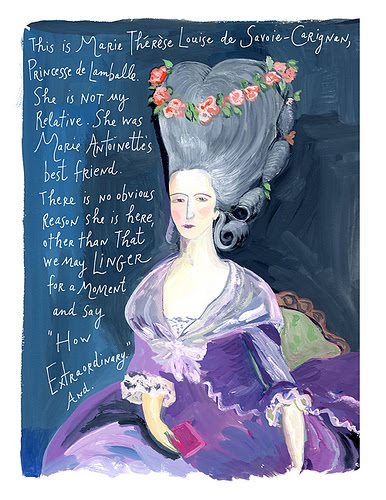 This is Marie Thérèse Louise de Savoie-Carignan,
Princesse de Lamballe.
She is NOT my
Relative. She was
Marie Antoinette's
best friend.
There is no obvious
Reason she is here,
other than That
we may LINGER
for a moment
and say
"How
Extraordinary."
And.